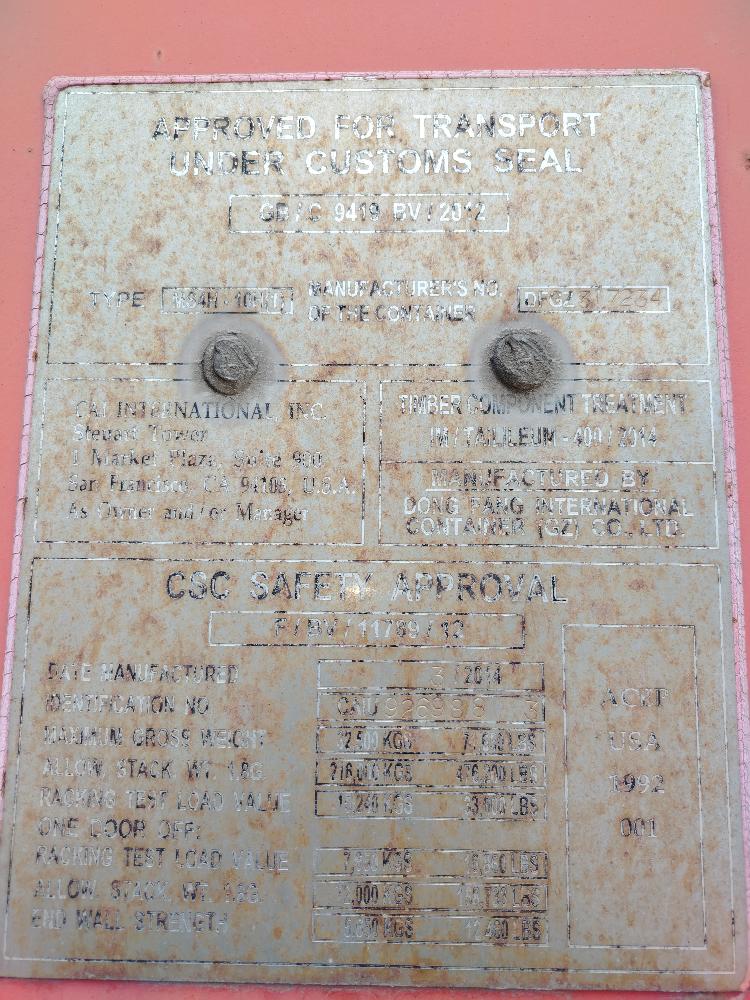 APPROVED FOR TRANSPORT
UNDER CUSTOMS SEAL
GB / C 9419 BV / 2012
TYPE
MANUFACTURER'S NO.
OF THE CONTAINER
DFGZ317264
CAI INTERNATIONAL, INC.
Steuart Tower
1 Market Plaza, Suite 900
San Francisco, CA 94105, U.S.A.
As Owner and/or Manager
TIMBER COMPONENT TREATMENT
IM / TAILILEUM - 400 / 2014
MANUFACTURED BY
DONG FANG INTERNATIONAL
CONTAINER (GZ) CO., LTD.
CSC SAFETY APPROVAL
F / BV / 11789 / 12
DATE MANUFACTURED 3 / 2014
IDENTIFICATION NO.
MAXIMUM GROSS WEIGHT 32,500 KGS LBS
ALLOW. STACK. WT. 1.8G. 216,000 KGS 476,200 LBS
RACKING TEST LOAD VALUE 15,240 KGS 33,600 LBS
ONE DOOR OFF:
RACKING TEST LOAD VALUE KGS LBS
ALLOW. STACK. WT. 1.8G. KGS LBS
END WALL STRENGTH KGS LBS
ACEP
USA
1992
001